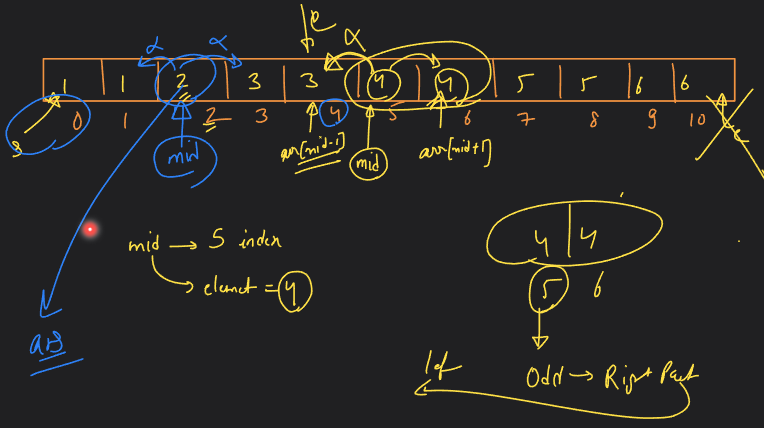 e
α α α
1 1 2 3 3 4 4 5 5 6 6
0 1 2 3 4 5 6 7 8 9 10
s e
mid arr[mid-1] mid arr[mid+1]
mid → 5 index
element = 4
4 | 4
5 6
ans
lef
Odd → Right Part